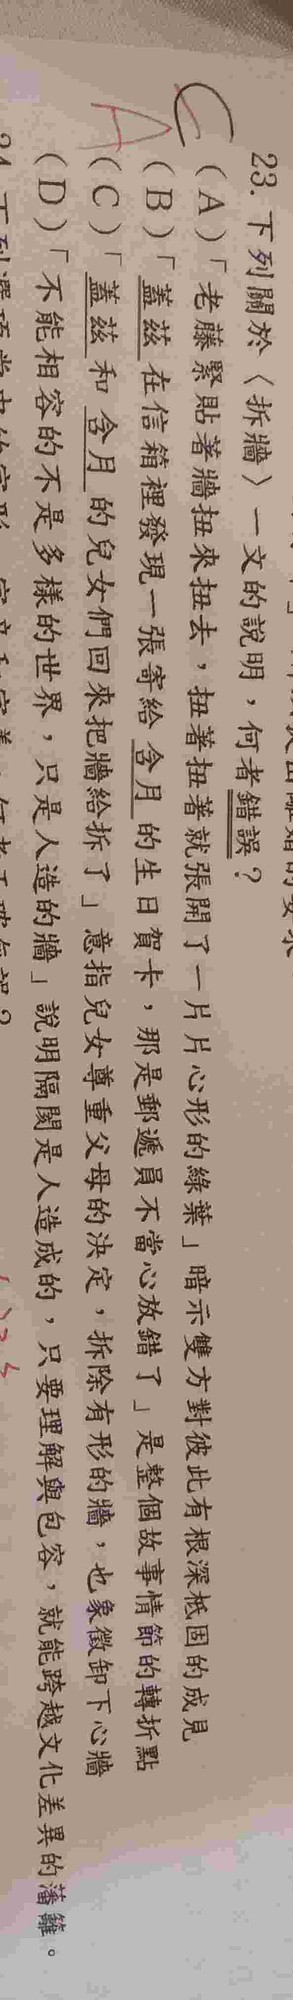 23.下列關於〈拆牆〉一文的說明，何者錯誤？
C
(A)「老藤緊貼著牆扭來扭去，扭著扭著就張開了一片片心形的綠葉」暗示雙方對彼此有根深柢固的成見
A
(B)「蓋茲在信箱裡發現一張寄給含月的生日賀卡，那是郵遞員不當心放錯了」是整個故事情節的轉折點
(C)「蓋茲和含月的兒女們回來把牆給拆了」意指兒女尊重父母的決定，拆除有形的牆，也象徵卸下心牆
(D)「不能相容的不是多樣的世界，只是人造的牆」說明隔閡是人造成的，只要理解與包容，就能跨越文化差異的藩籬。